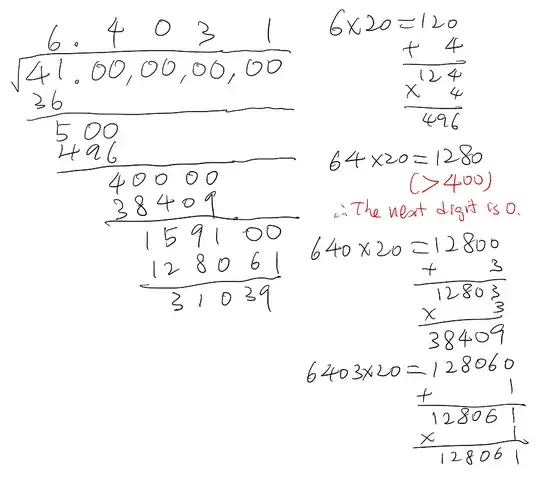 6. 4 0 3 1
√41.00,00,00,00
36
500
496
40000
38409
159100
128061
31039
6×20=120
+ 4
124
× 4
496
64×20=1280
(>400)
∴The next digit is 0.
640×20=12800
+ 3
12803
× 3
38409
6403×20=128060
+ 1
128061
× 1
128061